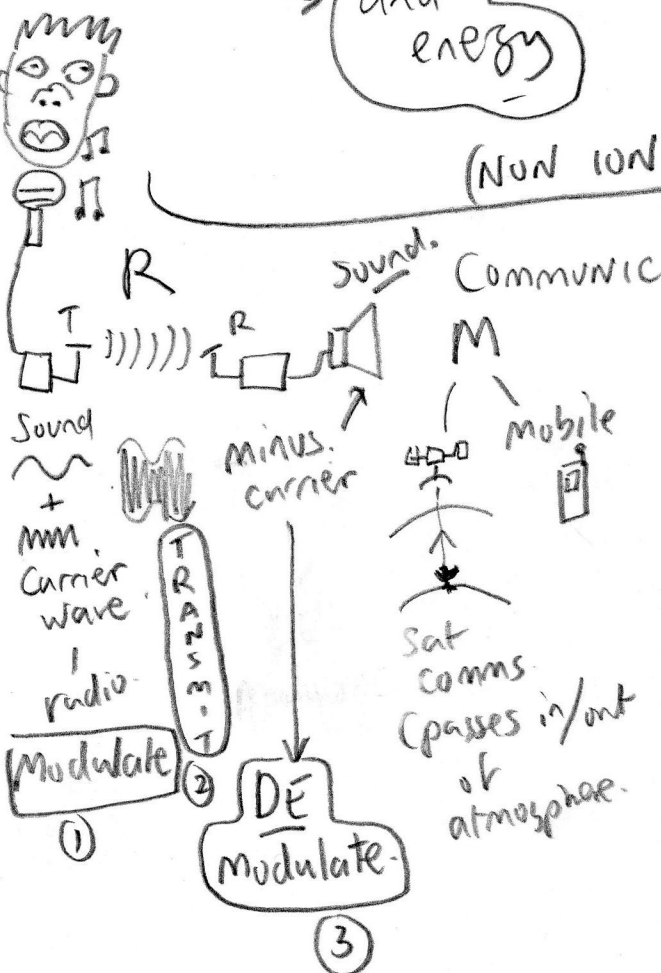 and
energy
(NON ION
R
Sound.
COMMUNIC
T
R
M
Mobile
Sound
+
Carrier
wave.
radio
Modulate
①
TRANSMIT
②
minus.
carrier
DE
Modulate.
③
Sat
comms
(passes in/out
of
atmosphere.